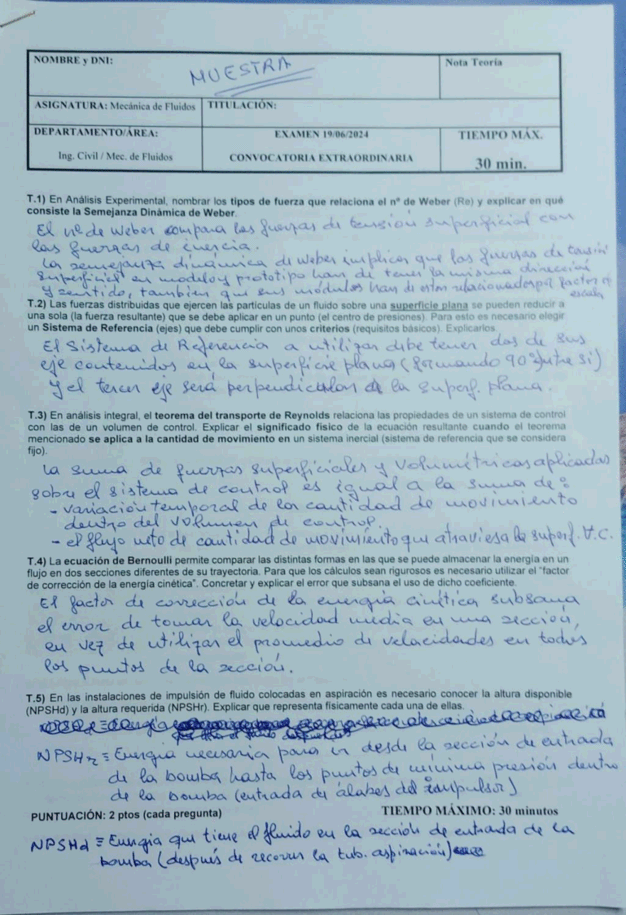 NOMBRE y DNI:
MUESTRA
Nota Teoría
ASIGNATURA: Mecánica de Fluidos
TITULACIÓN:
DEPARTAMENTO/ÁREA:
Ing. Civil / Mec. de Fluidos
EXAMEN 19/06/2024
CONVOCATORIA EXTRAORDINARIA
TIEMPO MÁX.
30 min.
T.1) En Análisis Experimental, nombrar los tipos de fuerza que relaciona el nº de Weber (Re) y explicar en qué
consiste la Semejanza Dinámica de Weber.
El nº de Weber compara las fuerzas de tensión superficial con
las fuerzas de inercia.
La semejanza dinámica de Weber implica que las fuerzas de tensión
superficial en modelo y prototipo han de tener la misma dirección
y sentido, también que sus módulos han de estar relacionados por factor de
escala
T.2) Las fuerzas distribuidas que ejercen las partículas de un fluido sobre una superficie plana se pueden reducir a
una sola (la fuerza resultante) que se debe aplicar en un punto (el centro de presiones). Para esto es necesario elegir
un Sistema de Referencia (ejes) que debe cumplir con unos criterios (requisitos básicos). Explicarlos.
El Sistema de Referencia a utilizar debe tener dos de sus
eje contenidos en la superficie plana (formando 90º entre si)
y el tercer eje será perpendicular a la superf. plana.
T.3) En análisis integral, el teorema del transporte de Reynolds relaciona las propiedades de un sistema de control
con las de un volumen de control. Explicar el significado físico de la ecuación resultante cuando el teorema
mencionado se aplica a la cantidad de movimiento en un sistema inercial (sistema de referencia que se considera
fijo).
La suma de fuerzas superficiales y volumétricas aplicadas
sobre el sistema de control es igual a la suma de:
- variación temporal de la cantidad de movimiento
dentro del volumen de control
- el flujo neto de cantidad de movimiento que atraviesa la superf. V.C.
T.4) La ecuación de Bernoulli permite comparar las distintas formas en las que se puede almacenar la energía en un
flujo en dos secciones diferentes de su trayectoria. Para que los cálculos sean rigurosos es necesario utilizar el "factor
de corrección de la energía cinética". Concretar y explicar el error que subsana el uso de dicho coeficiente.
El factor de corrección de la energía cinética subsana
el error de tomar la velocidad media en una sección,
en vez de utilizar el promedio de velocidades en todos
los puntos de la sección.
T.5) En las instalaciones de impulsión de fluido colocadas en aspiración es necesario conocer la altura disponible
(NPSHd) y la altura requerida (NPSHr). Explicar que representa físicamente cada una de ellas.
NPSHr ≡ Energía necesaria para ir desde la sección de entrada
de la bomba hasta los puntos de mínima presión dentro
de la bomba (entrada de álabes del impulsor)
PUNTUACIÓN: 2 ptos (cada pregunta)
TIEMPO MÁXIMO: 30 minutos
NPSHd ≡ Energía que tiene el fluido en la sección de entrada de la
bomba (después de recorrer la tub. aspiración)